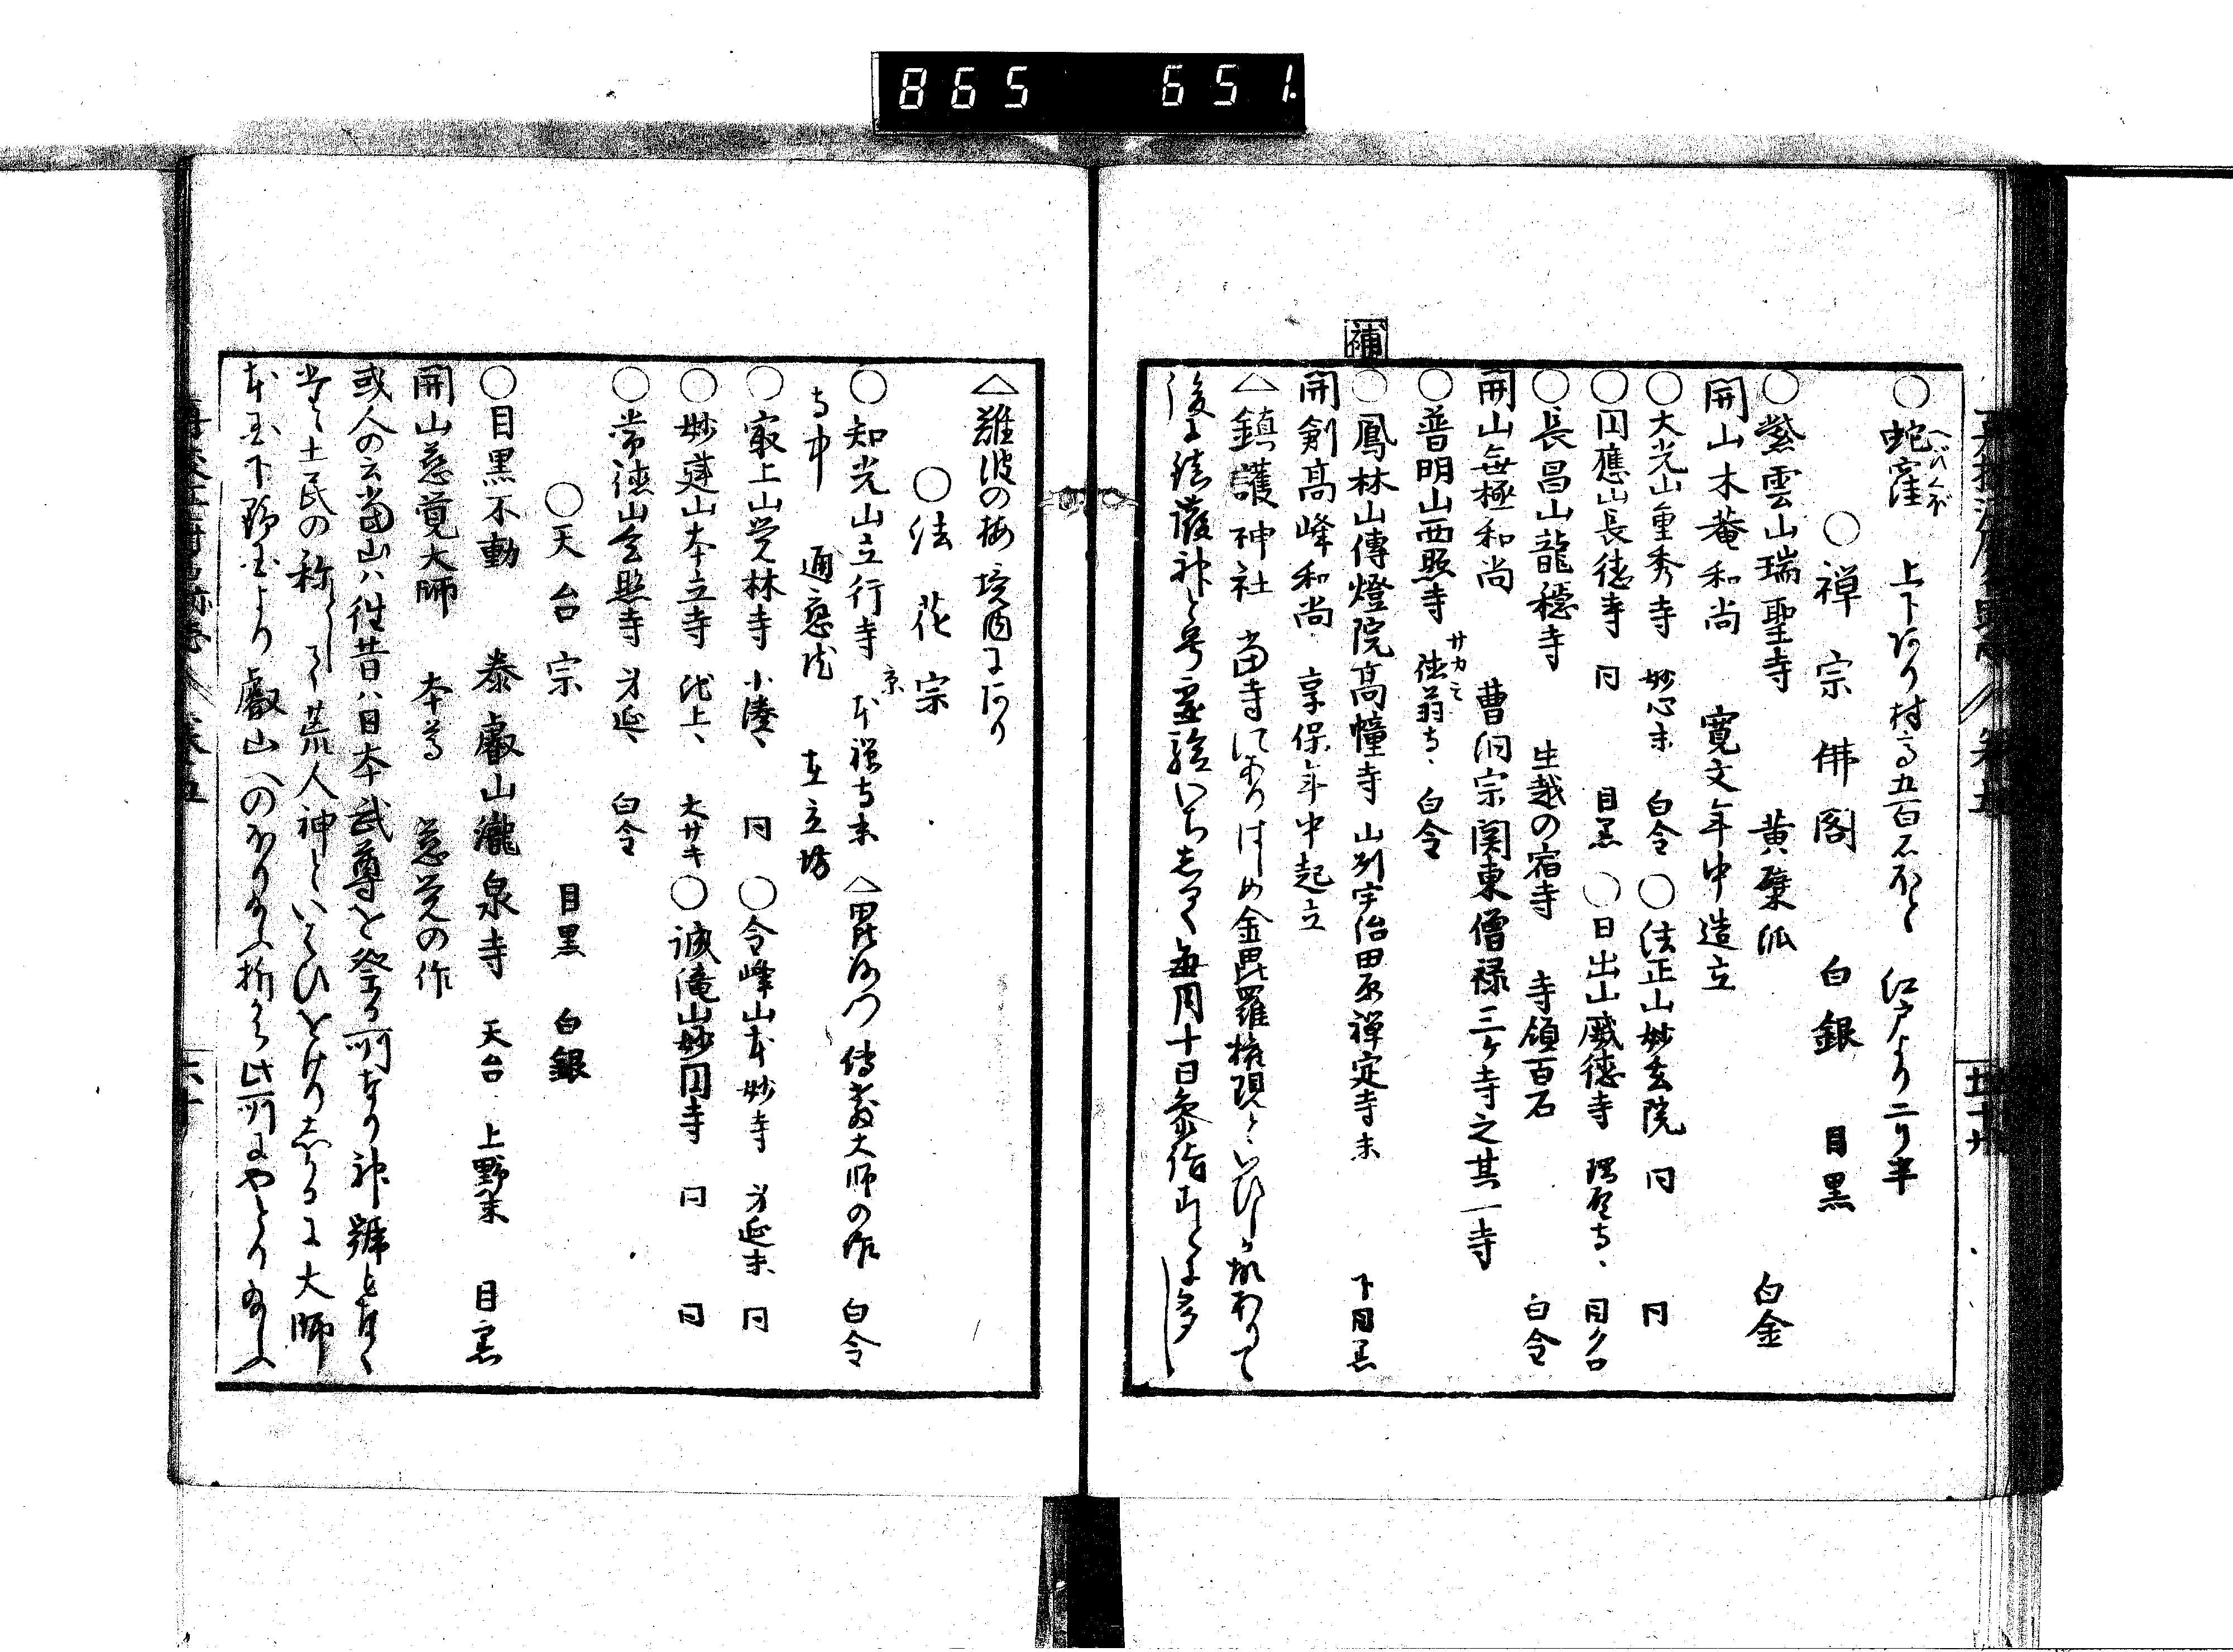 865 651
○蛇窪 上下あり村高五百石ほと 江戸より二り半
へびくぼ
○禅宗佛閣 白銀 目黒
○紫雲山瑞聖寺 黄檗派 白金
開山木菴和尚 寛文年中造立
○大光山重秀寺 妙心末 白令 ○法正山妙玄院 同 同
○円應山長徳寺 同 目黒 ○日出山威徳寺
○長昌山龍穏寺 生越の宿寺 寺領百石 白令
開山無極和尚 曹洞宗関東僧禄三ケ寺之其一寺
○普明山西照寺 徳翁寺、白令
補
○鳳林山傳燈院高幢寺 山州宇治田原禅定寺末 下目黒
開剣高峰和尚 享保年中起立
△鎮護神社 當寺にありはしめ金毘羅権現といひしか故ありて
後に鎮護神と号霊験いちしるく毎月十日参詣
△難波の梅 境内にあり
○法花宗
○知光山立行寺 京本禅寺末 △毘沙門 傳教大師の作 白令
寺中 通應院 本立坊
○最上山覚林寺 小湊、同 ○令峰山本妙寺 身延末 同
○妙蓮山本立寺 池上、大サキ ○誠滝山妙円寺 同 同
○常徳山全照寺 身延、白令
○天台宗 目黒 白銀
○目黒不動 泰叡山瀧泉寺 天台 上野末 目黒
開山慈覚大師 本尊 慈覚の作
或人の云當山ハ徃昔ハ日本武尊を祭る所なり神號もなく
土民の称として荒人神といひける しかるに大師
本国下野国より叡山へのほり 折から此所にやとり給ふ